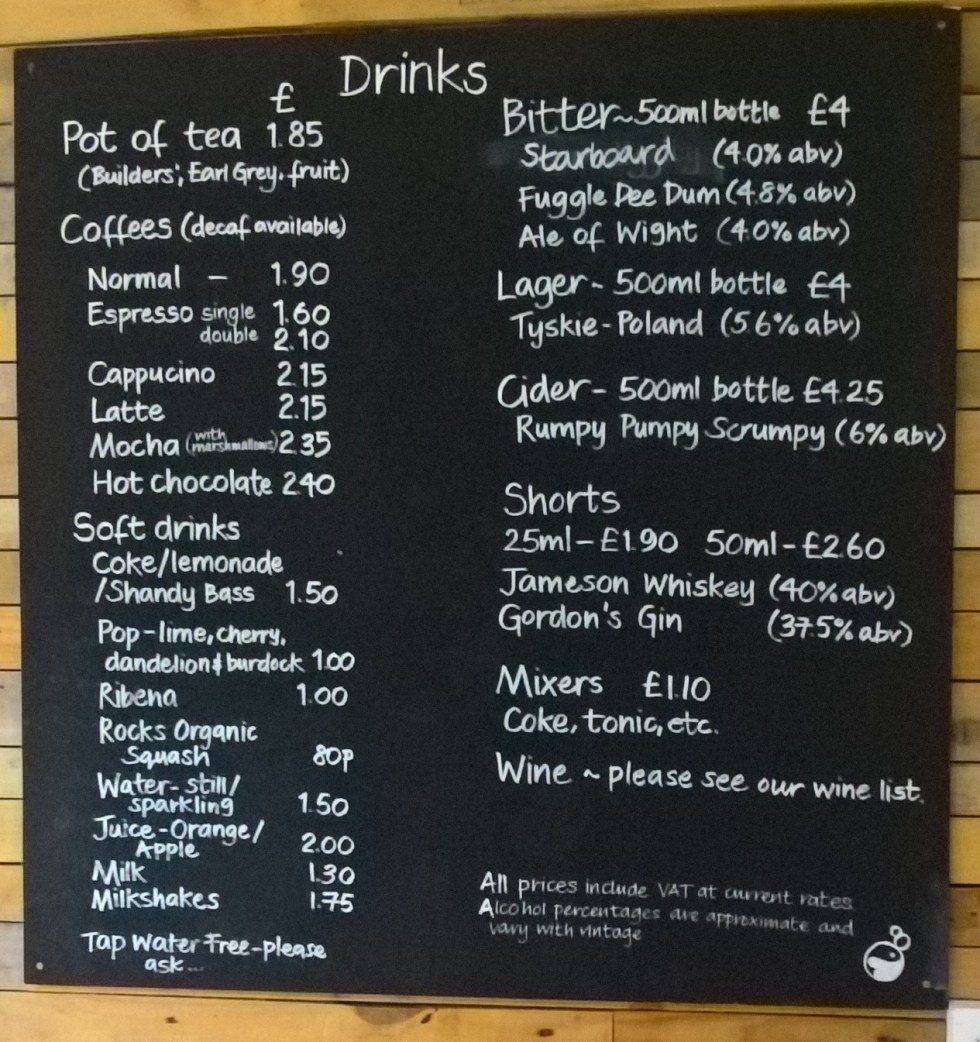 Drinks
£
Pot of tea 1.85
(Builders', Earl Grey, fruit)
Coffees (decaf available)
Normal - 1.90
Espresso single 1.60
double 2.10
Cappucino 2.15
Latte 2.15
Mocha (with marshmallows) 2.35
Hot chocolate 2.40
Soft drinks
Coke/lemonade
/Shandy Bass 1.50
Pop-lime, cherry,
dandelion & burdock 1.00
Ribena 1.00
Rocks Organic
Squash 80p
Water-still/
sparkling 1.50
Juice-Orange/
Apple 2.00
Milk 1.30
Milkshakes 1.75
Tap Water Free-please
ask...
Bitter~500ml bottle £4
Starboard (4.0% abv)
Fuggle Dee Dum (4.8% abv)
Ale of Wight (4.0% abv)
Lager~ 500ml bottle £4
Tyskie-Poland (5.6% abv)
Cider- 500ml bottle £4.25
Rumpy Pumpy Scrumpy (6% abv)
Shorts
25ml-£1.90 50ml-£2.60
Jameson Whiskey (40% abv)
Gordon's Gin (37.5% abv)
Mixers £1.10
Coke, tonic, etc.
Wine ~ please see our wine list.
All prices include VAT at current rates
Alcohol percentages are approximate and
vary with vintage